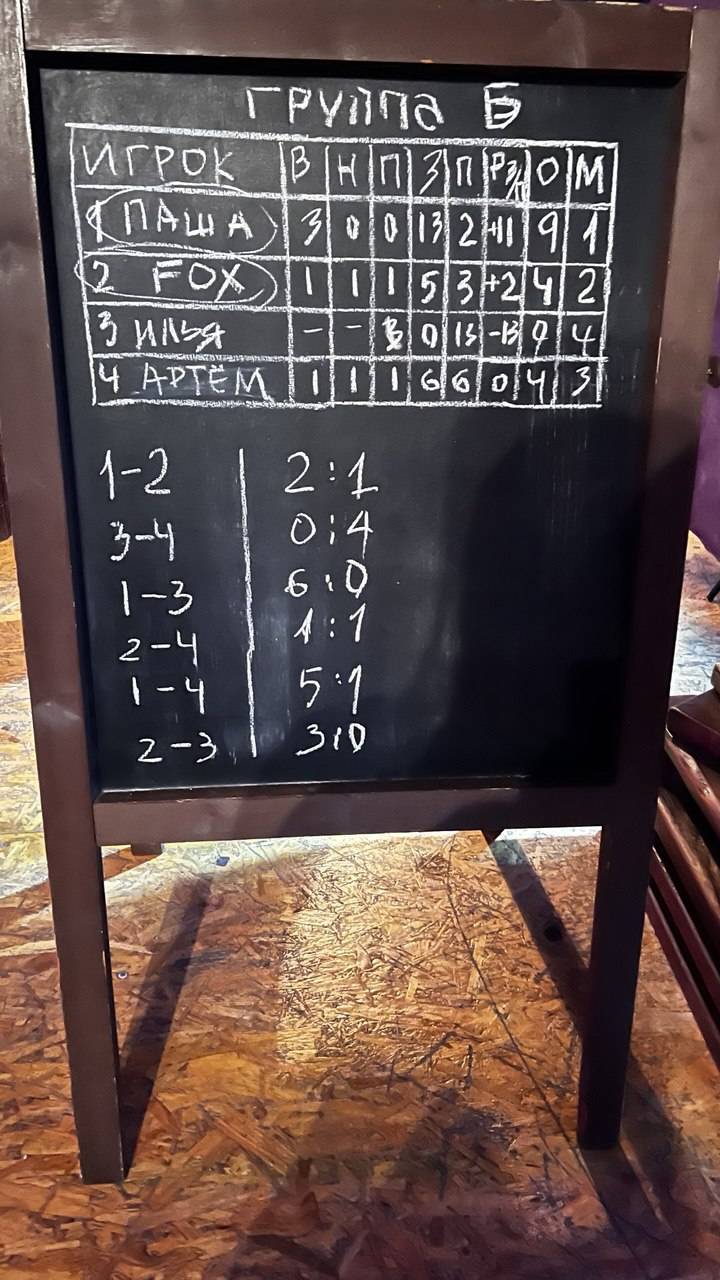 ГРУППА Б
ИГРОК В Н П З П РЗ/П О М
1 ПАША 3 0 0 13 2 +11 9 1
2 FOX 1 1 1 5 3 +2 4 2
3 ИЛЬЯ - - 3 0 13 -13 0 4
4 АРТЁМ 1 1 1 6 6 0 4 3
1-2 2:1
3-4 0:4
1-3 6:0
2-4 1:1
1-4 5:1
2-3 3:0